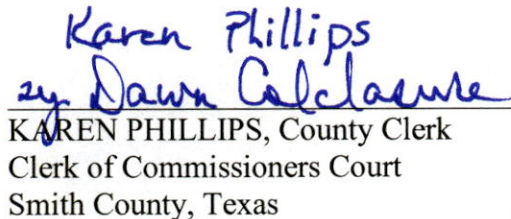 Karen Phillips
by Dawn Colclasure
KAREN PHILLIPS, County Clerk
Clerk of Commissioners Court
Smith County, Texas